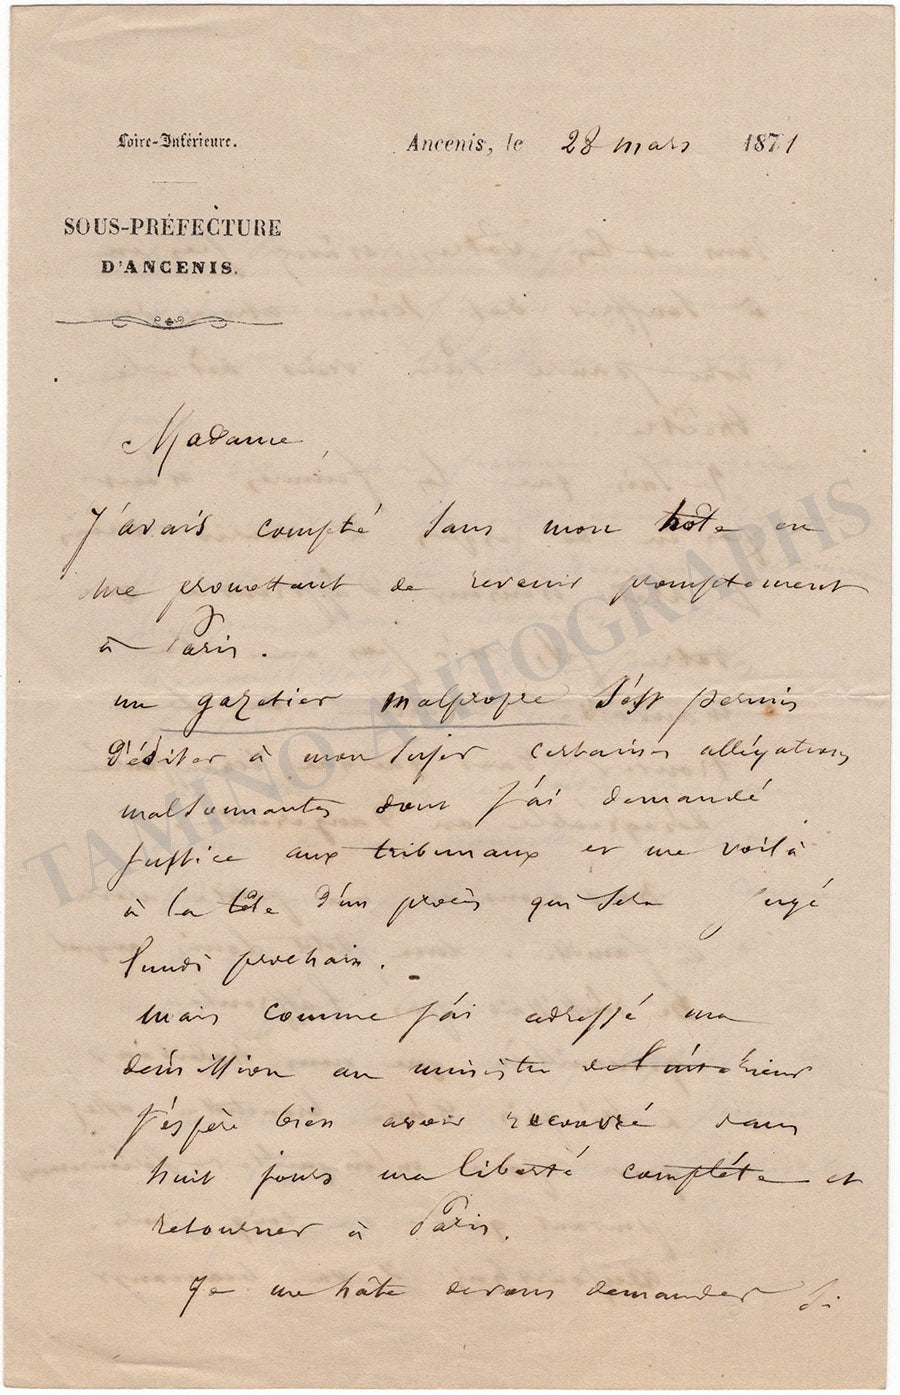 Loire-Inférieure.
Ancenis, le 28 mars 1871
SOUS-PRÉFECTURE
D'ANCENIS.
Madame,
J'avais compté sans mon hôte en
me promettant de revenir promptement
à Paris.
un gazetier malpropre s'est permis
d'éditer à mon sujet certaines allégations
malsonnantes dont j'ai demandé
justice aux tribunaux et me voilà
à la tête d'un procès qui sera jugé
lundi prochain.
mais comme j'ai adressé ma
démission au ministre de l'intérieur
j'espère bien avoir recouvré dans
huit jours ma liberté complète et
retourner à Paris.
Je me hâte de vous demander si
TAMINO AUTOGRAPHS